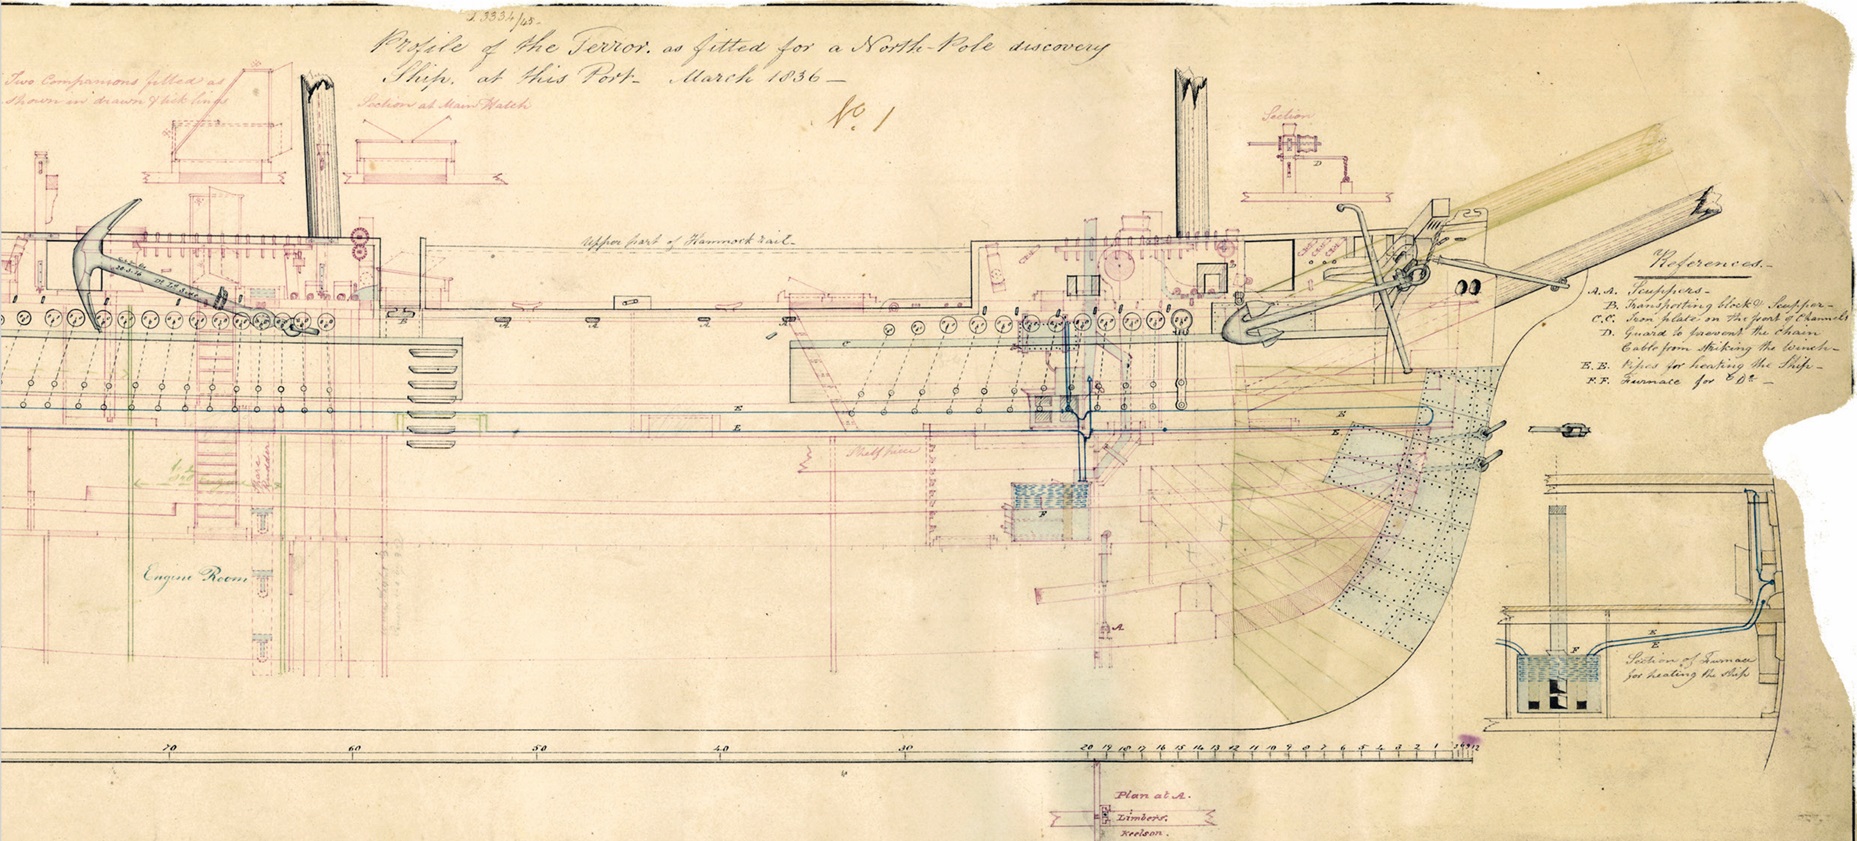 Profile of the Terror. as fitted for a North-Pole discovery
Ship. at this Port- March 1836-
No. 1
Two Companions fitted as
shown in drawn & tick lines
Section at Main Hatch
Section
D
Upper part of Hammock rail-
References.-
A.A. Scuppers-
B. Transporting block & Scupper-
C.C. Iron plate on the front of Channels
D. Guard to prevent the Chain
Cable from striking the Winch-
E.E. Pipes for heating the Ship-
F.F. Furnace for Do-
B
A
A
A
A
C
E
E
E
E
Shelf piece
F
Engine Room
A
E
E
F
Section of Furnace
for heating the Ship
70 60 50 40 30 20 19 18 17 16 15 14 13 12 11 10 9 8 7 6 5 4 3 2 1
Plan at A.
Limbers.
Keelson.